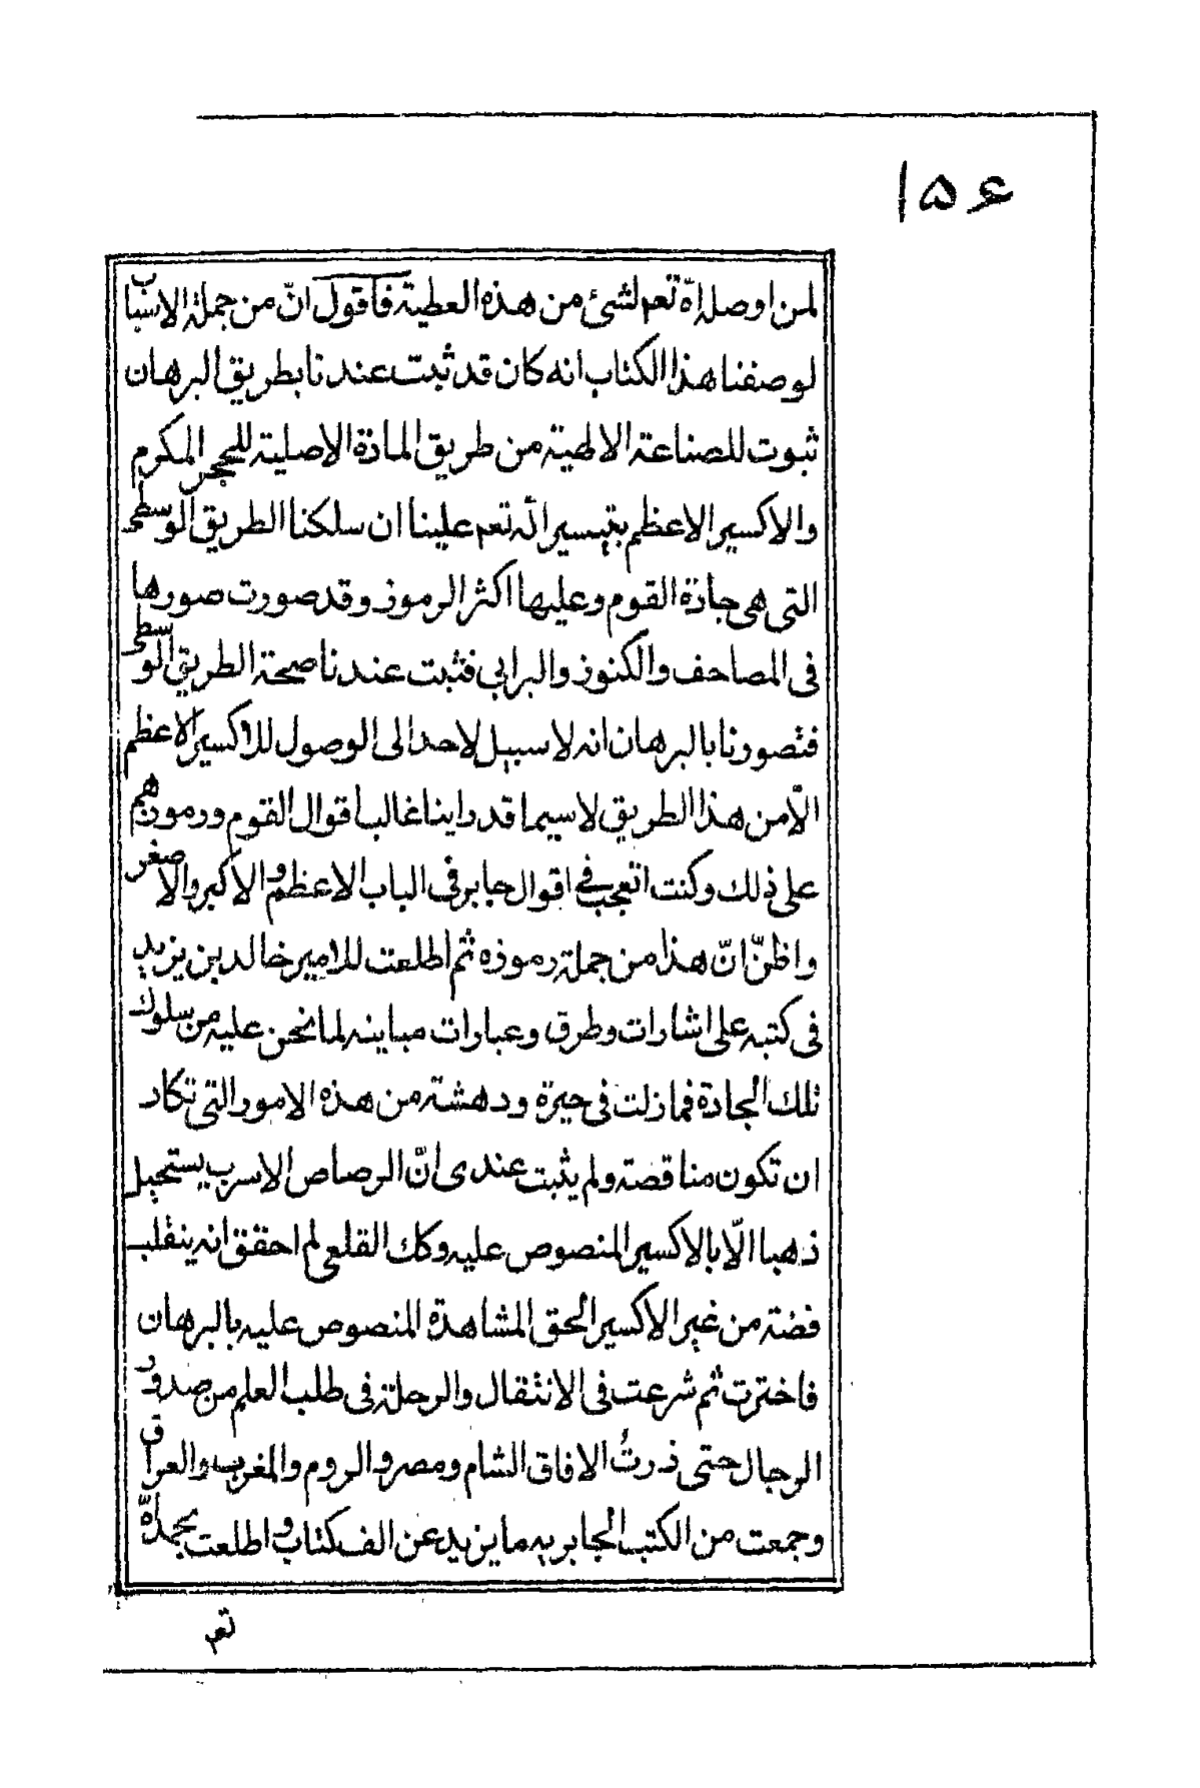 ۱۵۶
لمن اوصله الله تعم لشئ من هذه العطية فاقول انّ من جملة الاسباب
لوصفنا هذا الكتاب انه كان قد ثبت عندنا بطريق البرهان
ثبوت للصناعة الالهية من طريق المادة الاصلية للحجر المكرم
والاكسير الاعظم بتيسير الله تعم علينا ان سلكنا الطريق الوسطى
التى هى جادة القوم وعليها اكثر الرموز وقد صورت صورها
فى المصاحف والكنوز والبرابى فثبت عندنا صحة الطريق الوسطى
فتصورنا بالبرهان انه لا سبيل لاحد الى الوصول للاكسير الاعظم
الّا من هذا الطريق لاسيما قد راينا غالب اقوال القوم ورموزهم
على ذلك وكنت اتعجب فى اقوال جابر فى الباب الاعظم والاكبر والاصغر
واظنّ انّ هذا من جملة رموزه ثم اطلعت للامير خالد بن يزيد
فى كتبه على اشارات وطرق وعبارات مباينه لما نحن عليه من سلوك
تلك الجادة فمازلت فى حيرة ودهشة من هذه الامور التى تكاد
ان تكون مناقصة ولم يثبت عندى انّ الرصاص الاسرب يستحيل
ذهبا الّا بالاكسير المنصوص عليه وكك القلعى لم احقق انه ينقلب
فضة من غير الاكسير الحق المشاهدة المنصوص عليه بالبرهان
فاخترت ثم شرعت فى الانتقال والرحلة فى طلب العلم من صدور
الرجال حتى ذرتُ الافاق الشام ومصر والروم والمغرب والعراق
وجمعت من الكتب الجابريه ما يزيد عن الف كتاب واطلعت بحمد الله
تعم